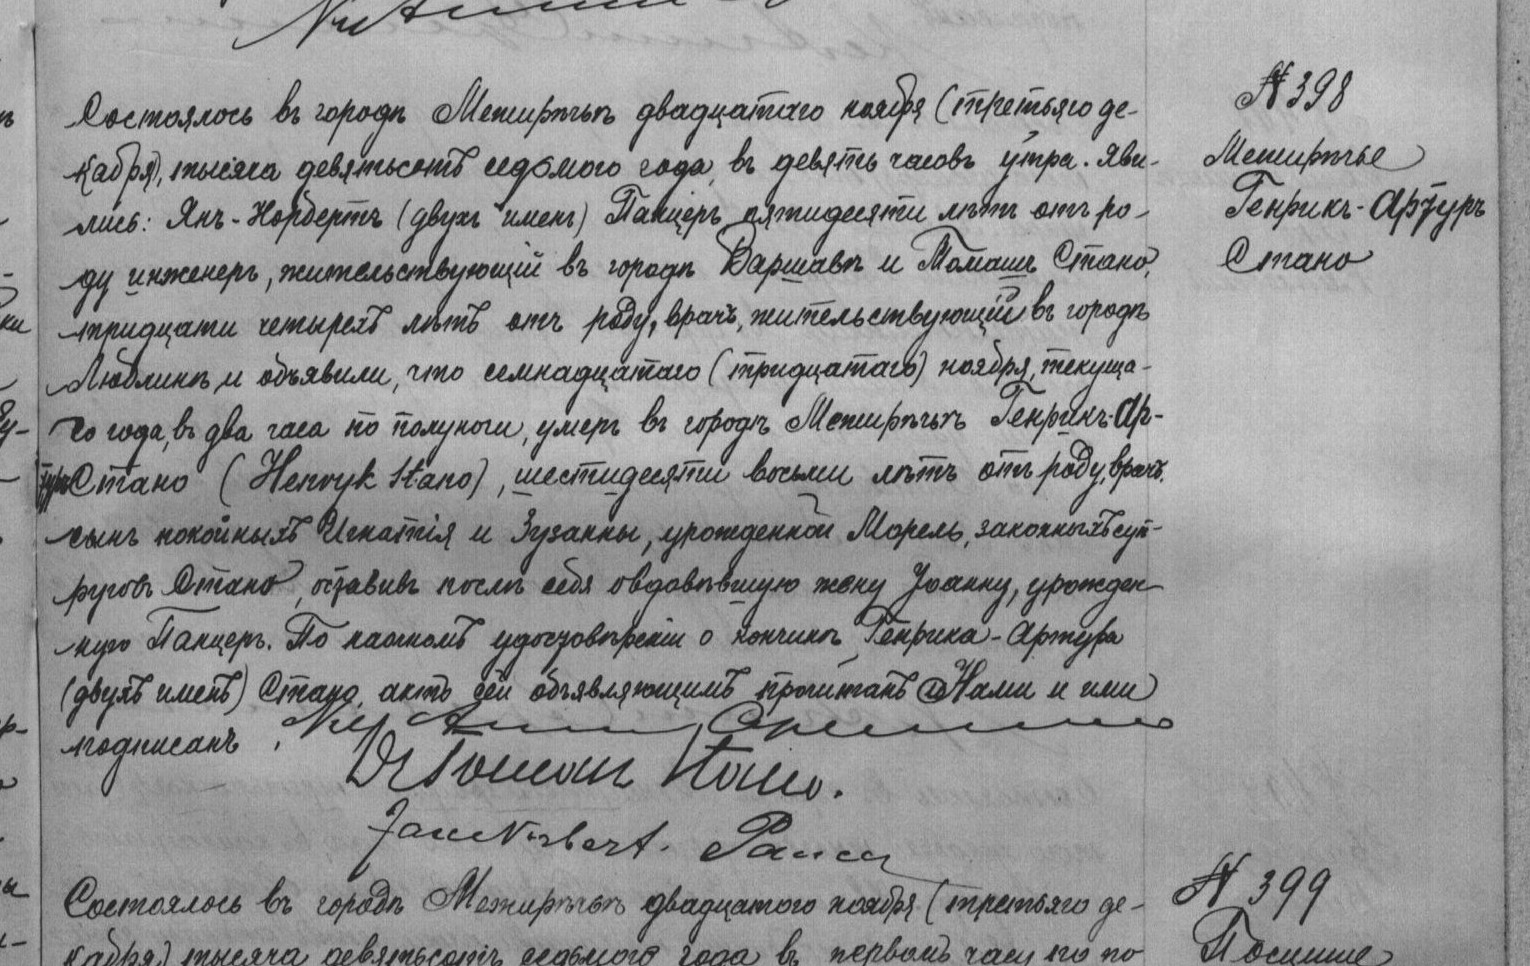 № 398
Межирѣчье
Генрикъ-Артуръ
Стано
Состоялось въ городѣ Межирѣчьѣ двадцатаго ноября (третьяго де-
кабря), тысяча девятьсотъ седьмого года, въ девять часовъ утра. Яви-
лись: Янъ-Норбертъ (двухъ именъ) Панцеръ, пятидесяти лѣтъ отъ ро-
ду инженеръ, жительствующій въ городѣ Варшавѣ и Томашъ Стано,
тридцати четырехъ лѣтъ отъ роду, врачъ, жительствующій въ городѣ
Люблинѣ, и объявили, что семнадцатаго (тридцатаго) ноября, текуща-
го года, въ два часа по полуночи, умеръ въ городѣ Межирѣчьѣ Генрикъ-Ар-
туръ Стано (Henryk Stano), шестидесяти восьми лѣтъ отъ роду, врачъ,
сынъ покойныхъ Игнатія и Зузанны, урожденной Морель, законныхъ суп-
руговъ Стано, оставивъ послѣ себя овдовѣвшую жену Іоанну, урожден-
ную Панцеръ. По наочномъ удостовѣреніи о кончинѣ Генрика-Артура
(двухъ именъ) Стано, актъ сей объявляющимъ прочитанъ Нами и ими
подписанъ.
Dr Tomasz Stano.
Jan Norbert. Pancer
№ 399
Состоялось въ городѣ Межирѣчьѣ двадцатого ноября (третьяго де-
кабря) тысяча девятьсотъ седьмого года въ первомъ часу по по